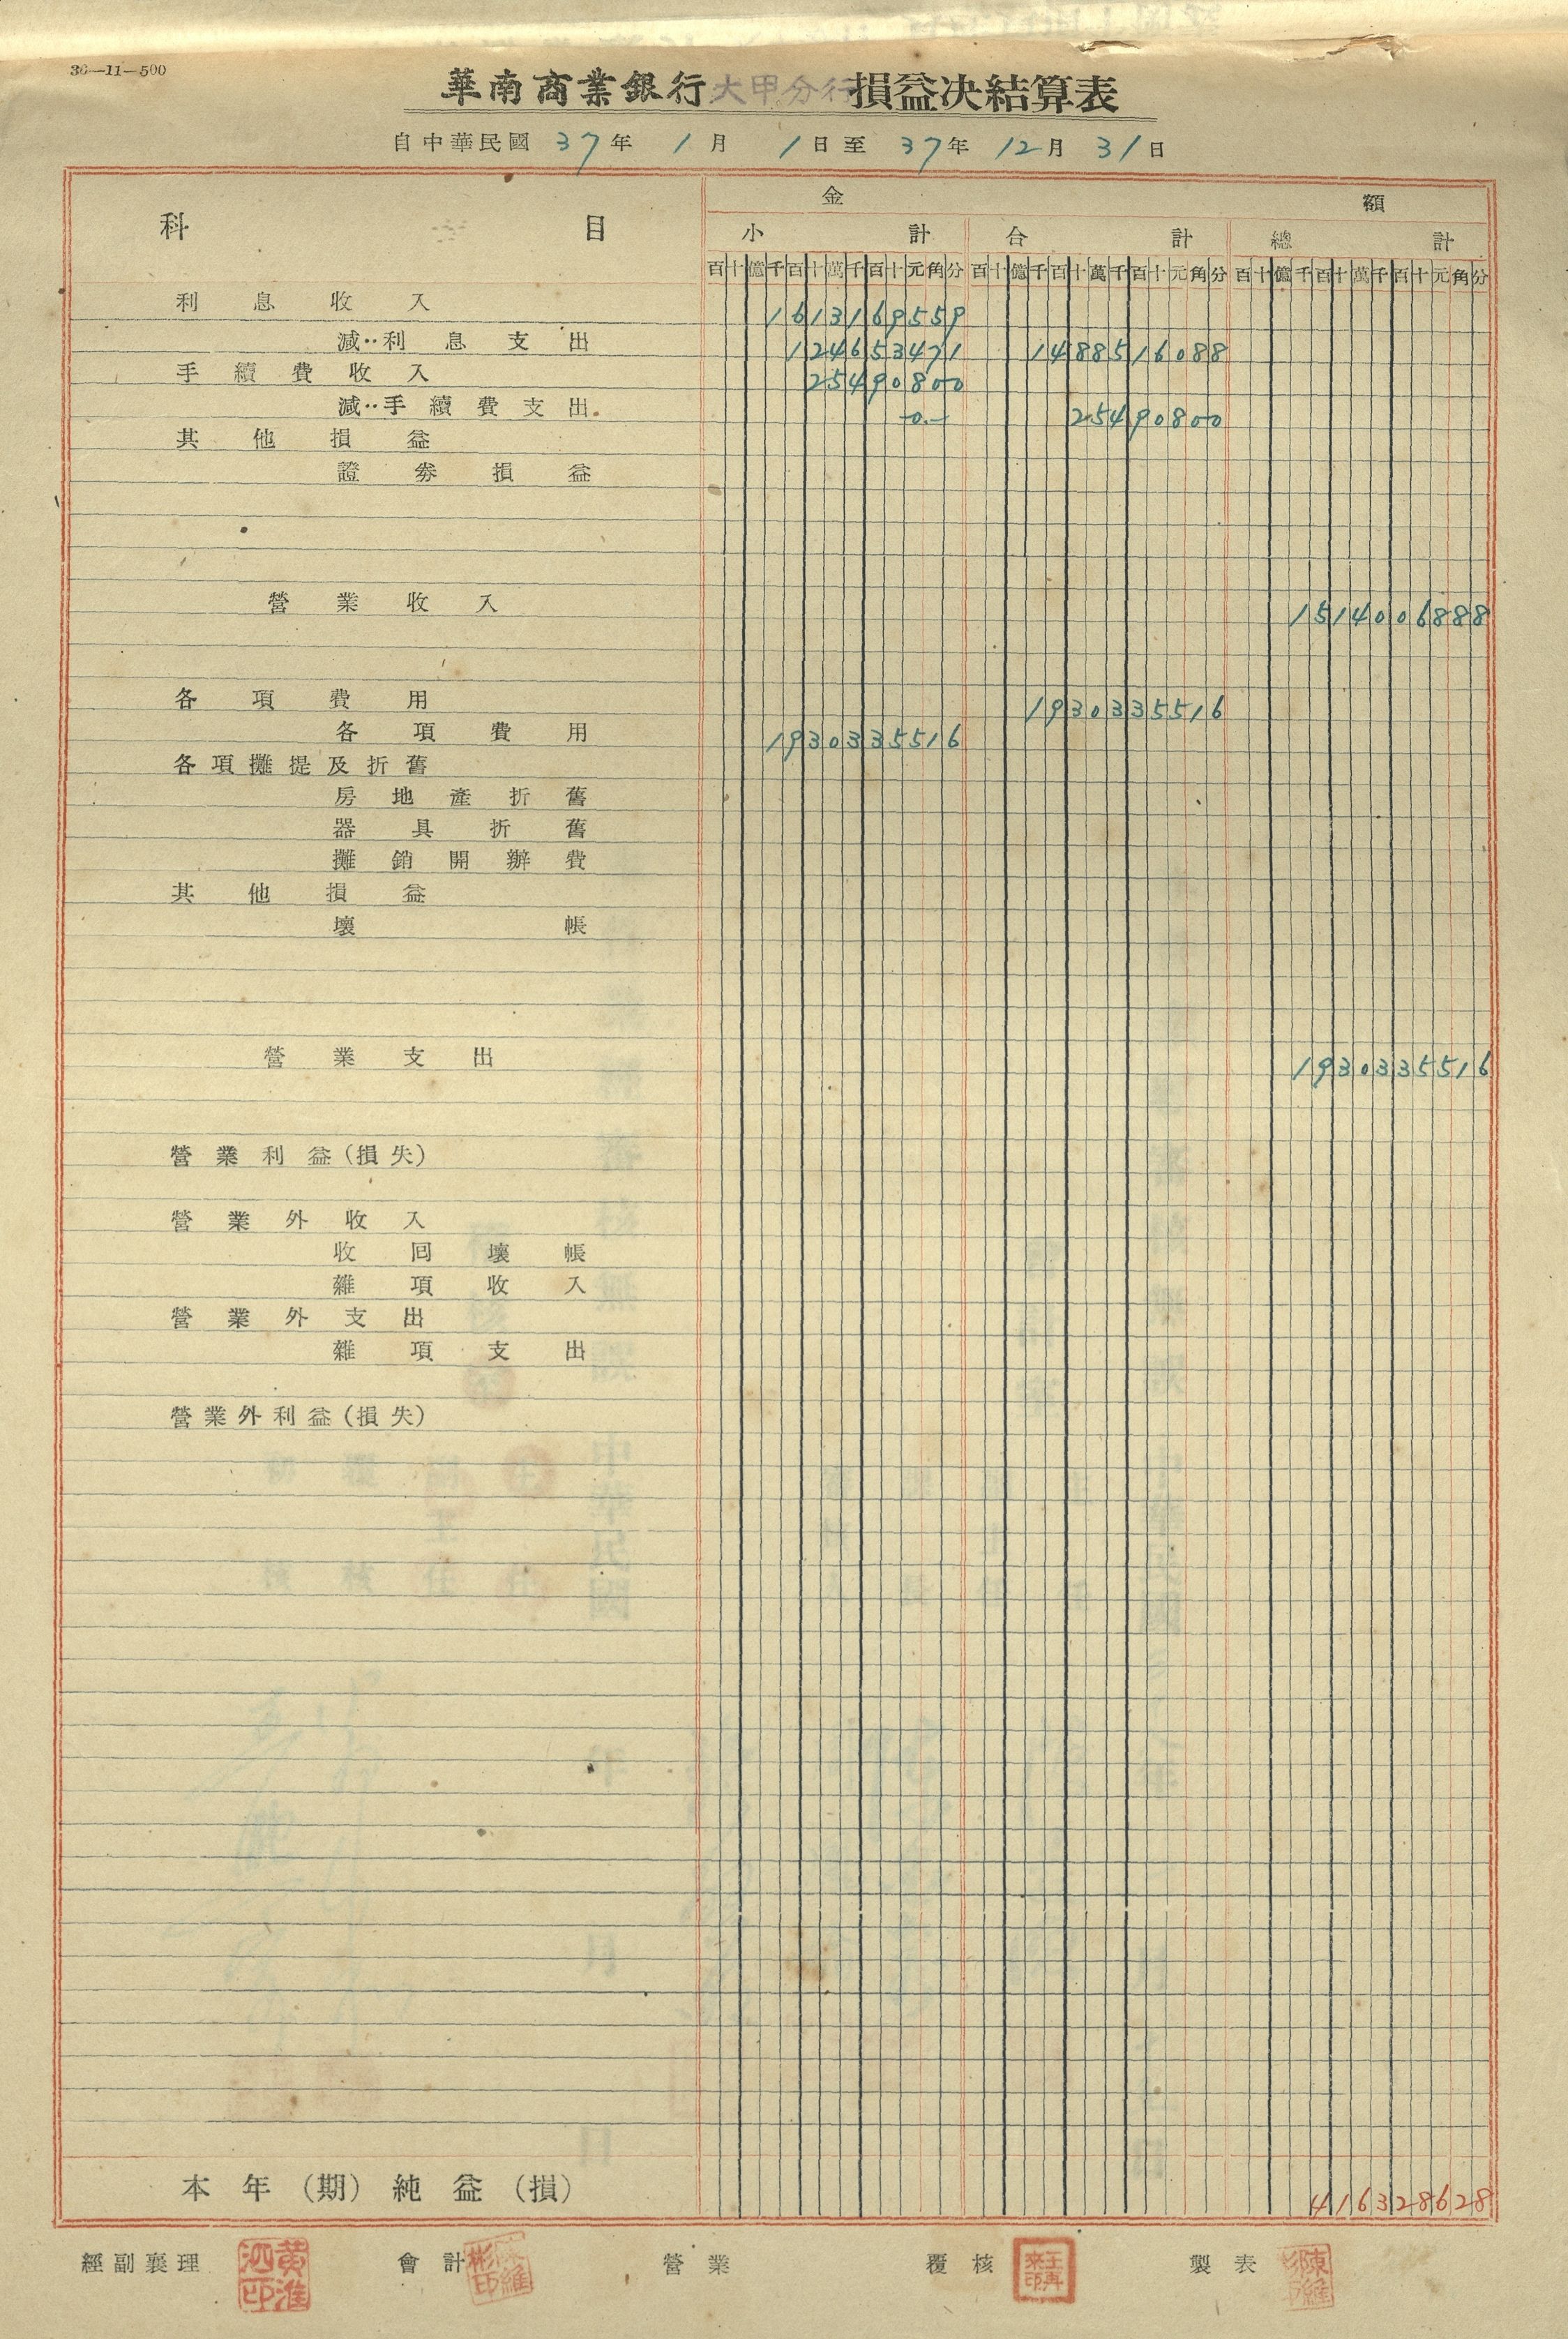 36—11—500
華南商業銀行大甲分行損益決結算表
自中華民國 37年 1月 1日至 37年 12月 31日
科目 金額
小計 合計 總計
百十億千百十萬千百十元角分 百十億千百十萬千百十元角分 百十億千百十萬千百十元角分
利息收入 1613169559
減‥利息支出 124653471 1488516088
手續費收入 25490800
減‥手續費支出 -0.- 25490800
其他損益
證券損益
營業收入 1514006888
各項費用 1930335516
各項費用 1930335516
各項攤提及折舊
房地產折舊
器具折舊
攤銷開辦費
其他損益
壞帳
營業支出 1930335516
營業利益(損失)
營業外收入
收回壞帳
雜項收入
營業外支出
雜項支出
營業外利益(損失)
本年(期)純益(損) 416328628
經副襄理 會計 營業 覆核 製表